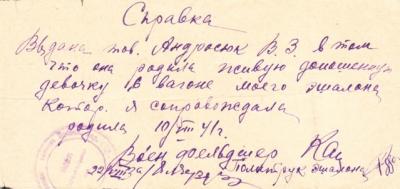 Справка
Выдана тов. Андросюк В.З в том
что она родила живую доношенную
девочку в вагоне моего эшалона
котор. я сопровождала
родила 10/VIII 41г.
Воен фельдшер
Политрук эшалона